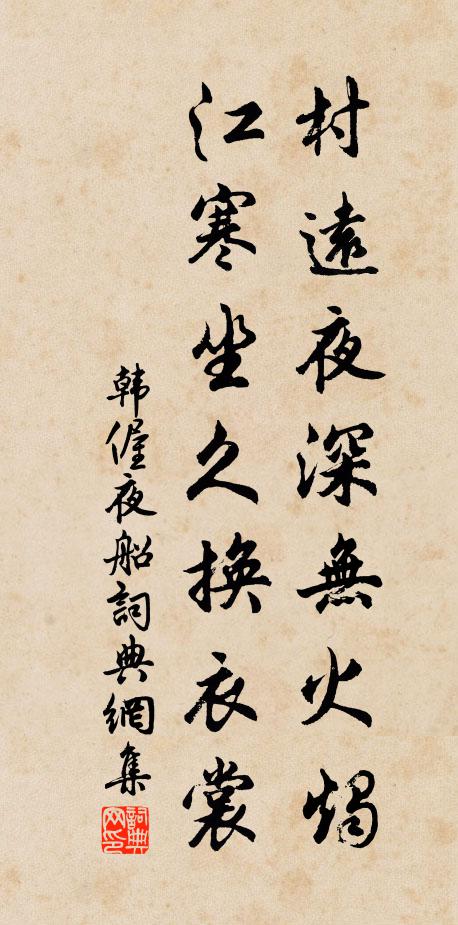 村遠夜深無火燭
江寒坐久換衣裳
韓偓夜船詞典網集
詞典网印